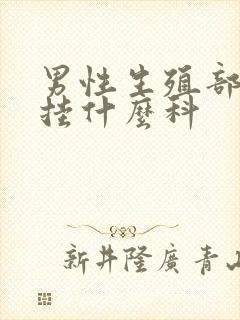 男性生殖部
挂什麼科
新井隆廣青山